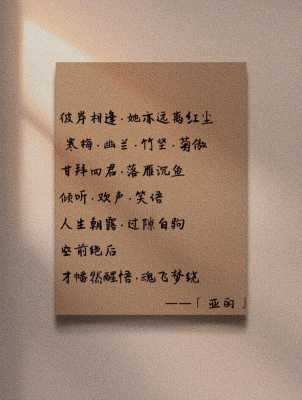 彼岸相逢·她亦远离红尘
寒梅·幽兰·竹坚·菊傲
甘拜四君·落雁沉鱼
倾听·欢声·笑语
人生朝露·过隙白驹
空前绝后
才幡然醒悟·魂飞梦绕
——「亚的』